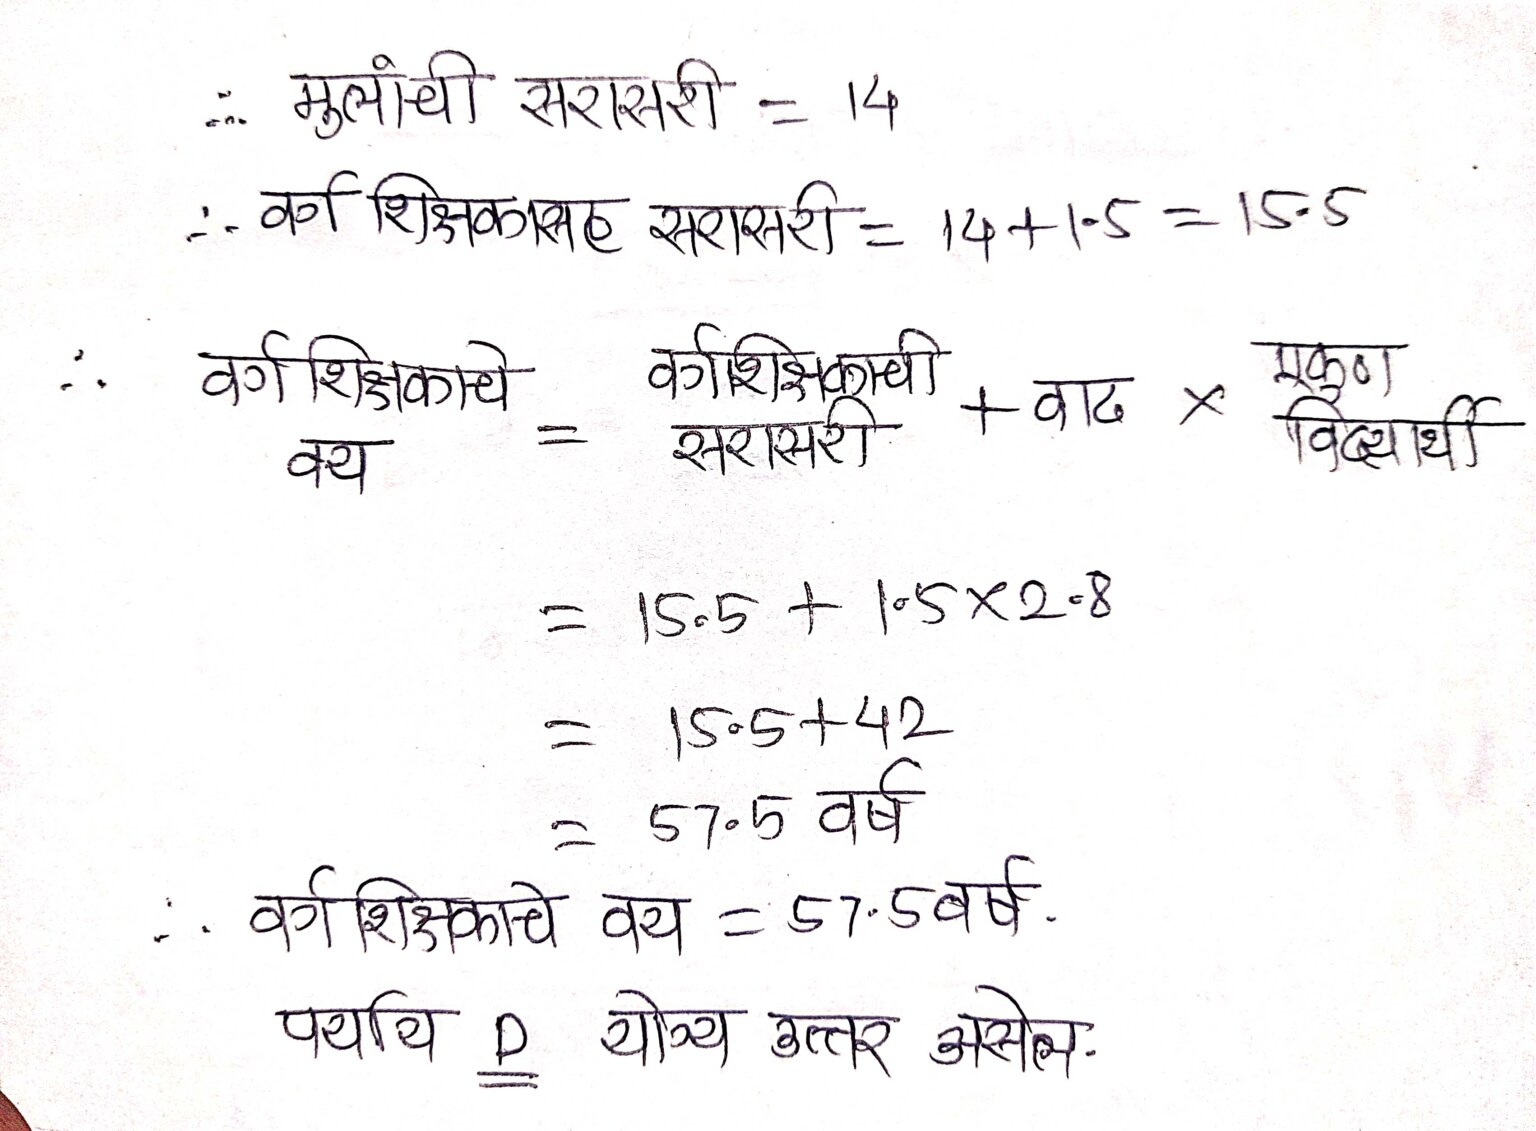 ∴ मुलांची सरासरी = 14
∴ वर्ग शिक्षकासह सरासरी = 14 + 1.5 = 15.5
∴ वर्ग शिक्षकाचे वय = वर्गशिक्षकाची सरासरी + वाढ × एकुण विद्यार्थी
= 15.5 + 1.5 × 2.8
= 15.5 + 42
= 57.5 वर्ष
∴ वर्ग शिक्षकाचे वय = 57.5 वर्ष.
पर्याय D योग्य उत्तर असेल.